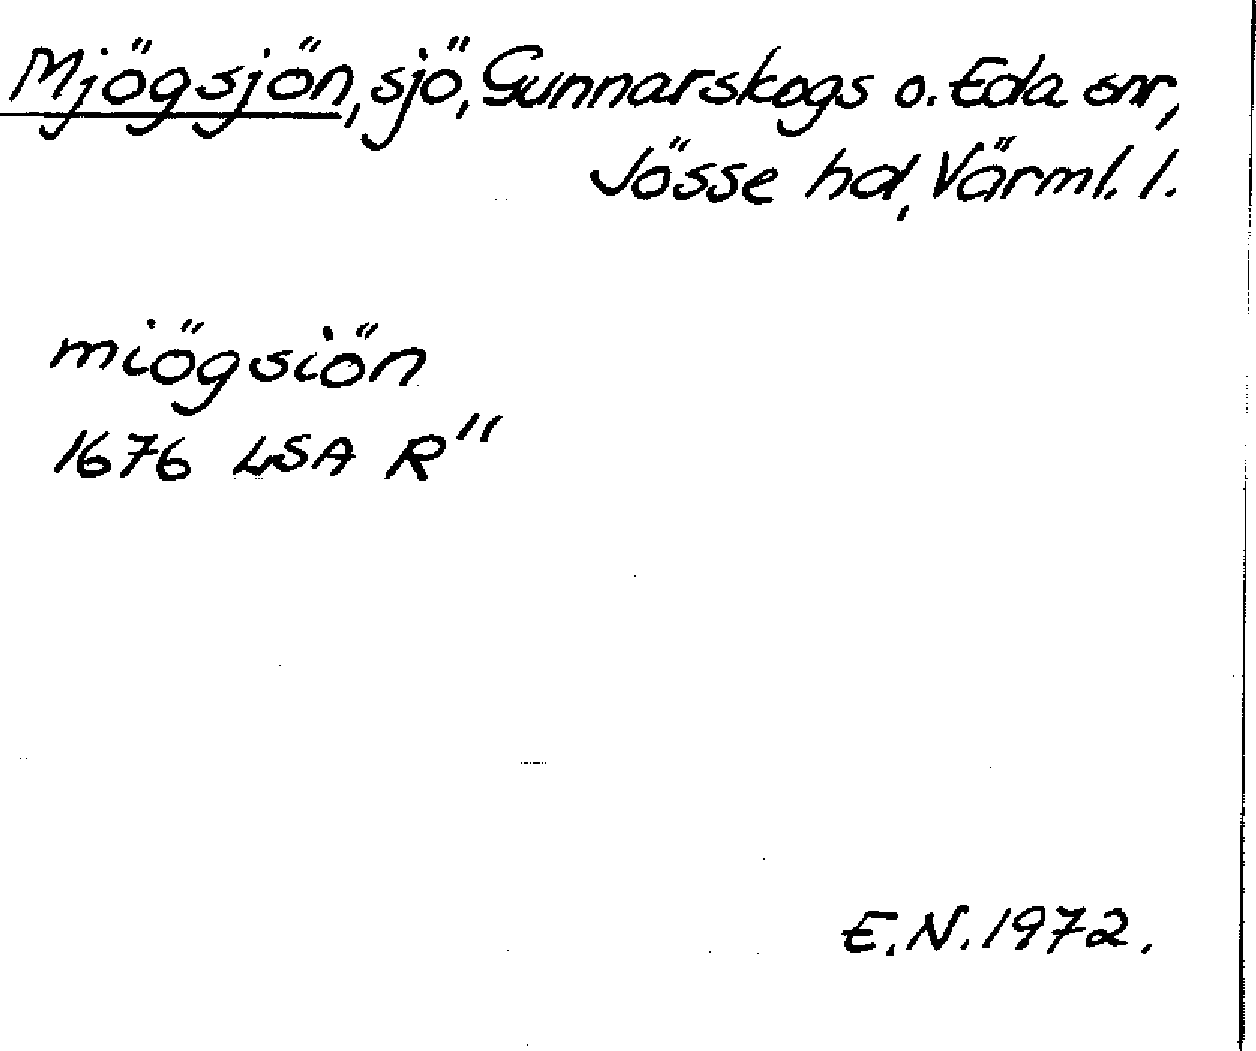 Mjögsjön, sjö, Gunnarskogs o. Eda snr,
Jösse hd, Värml. l.
miögsiön
1676 LSA R"
E.N. 1972.